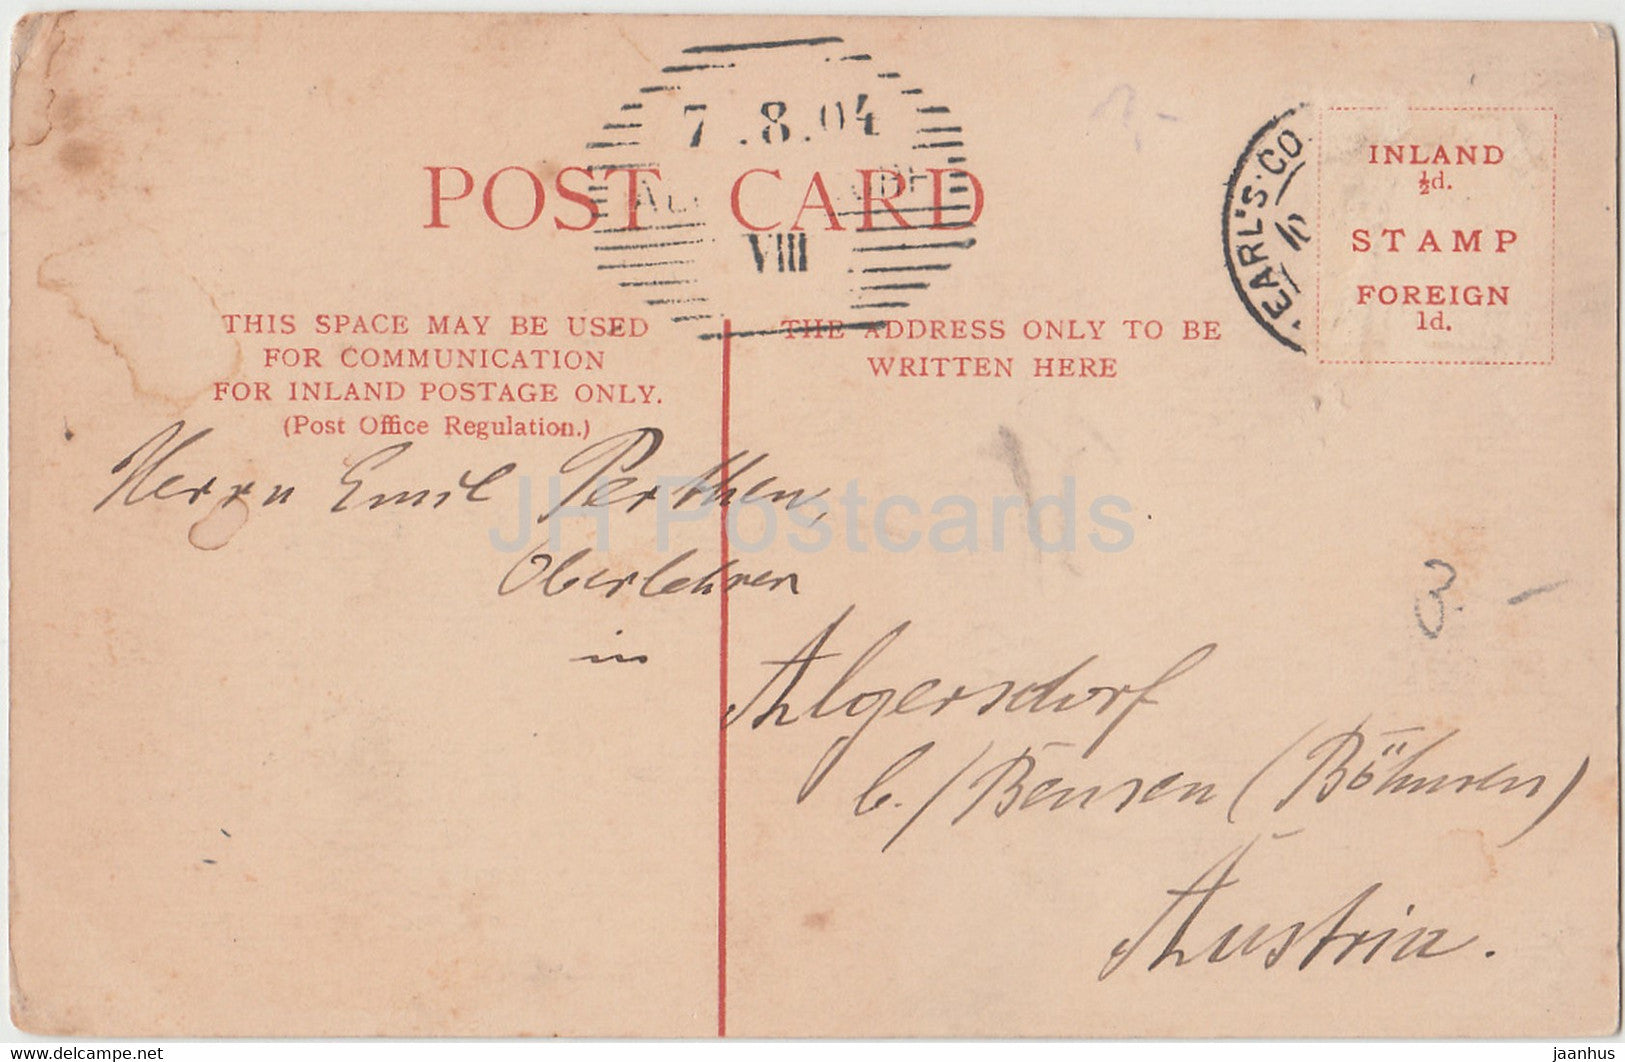 7.8.04
POST CARD
VIII
EARL'S.CO
INLAND
½d.
STAMP
FOREIGN
1d.
THIS SPACE MAY BE USED
FOR COMMUNICATION
FOR INLAND POSTAGE ONLY.
(Post Office Regulation.)
THE ADDRESS ONLY TO BE
WRITTEN HERE
Herrn Emil Perthen,
Oberlehrer
in
Algersdorf
b./Bensen (Böhmen)
Austria.
3.-
JH Postcards
delcampe.net
jaanhus